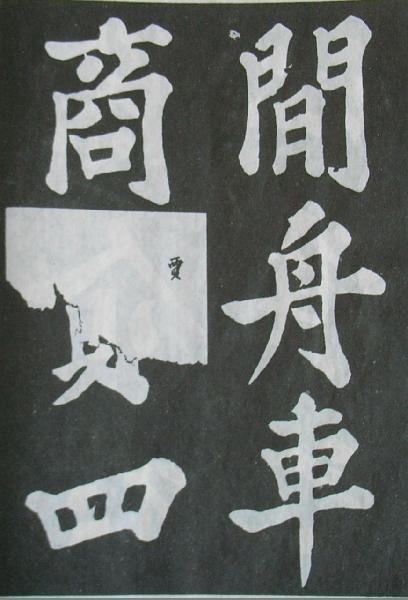 閒舟車
商賈四